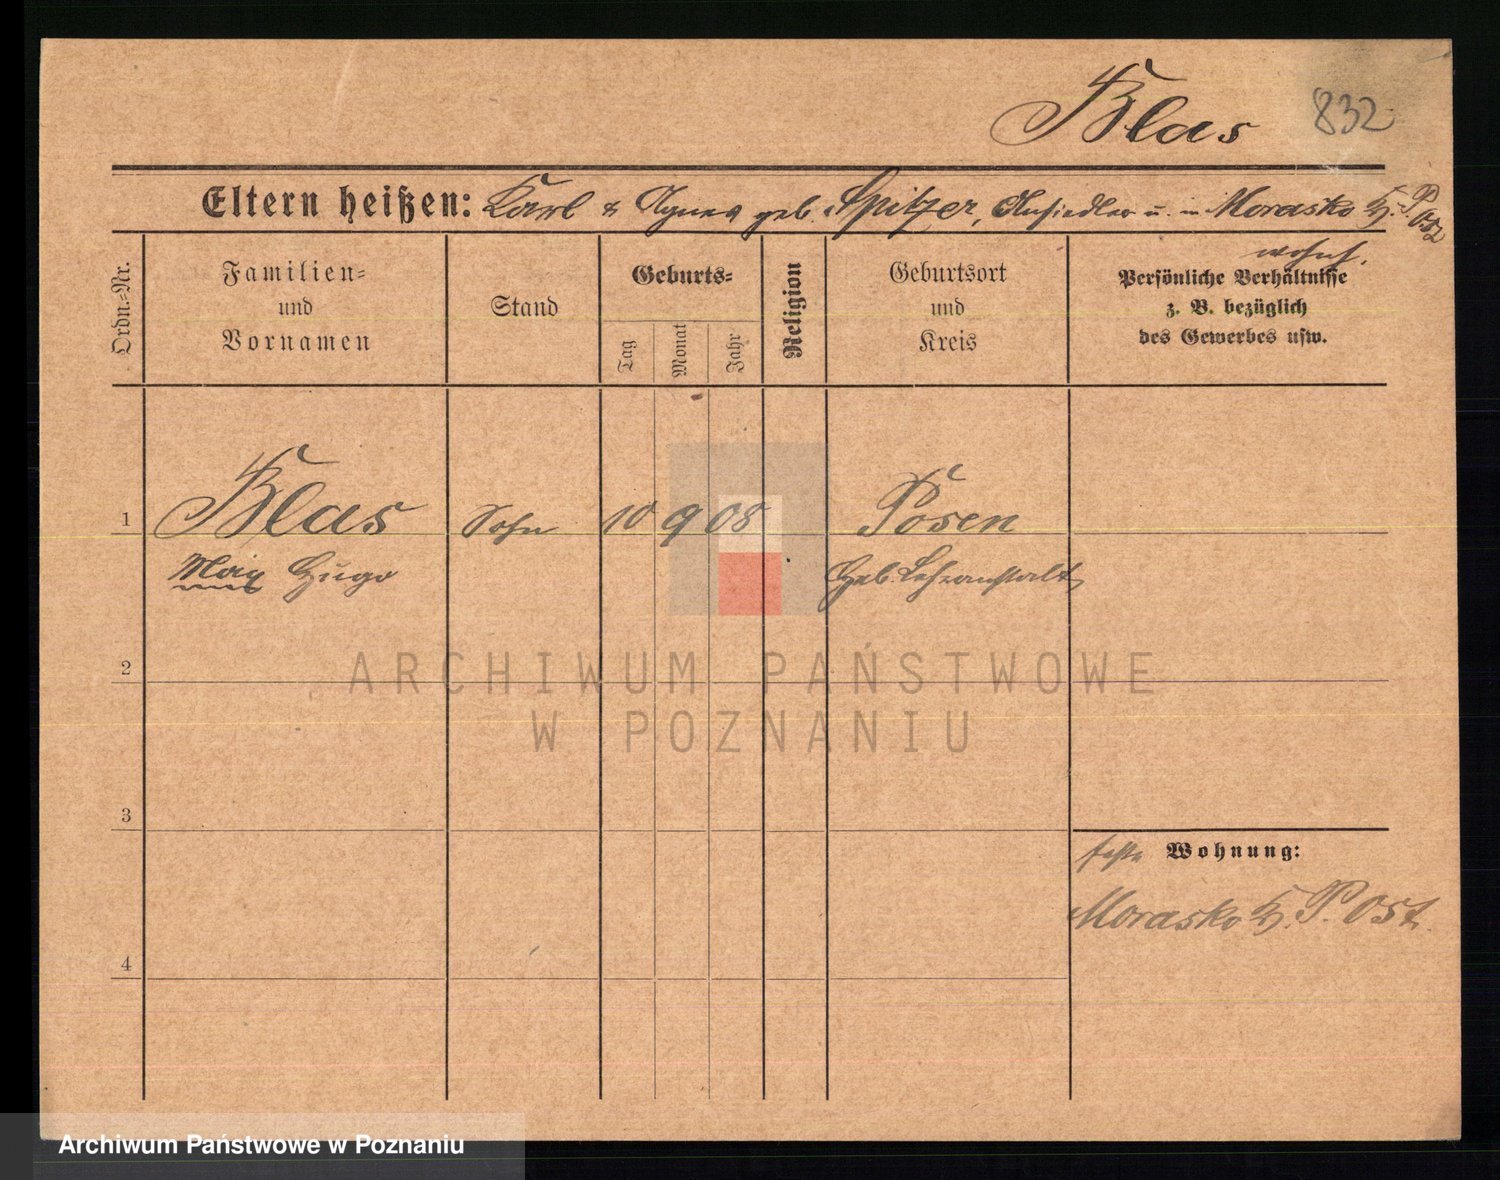 Blas 832
Eltern heißen: Karl & Agnes geb. Spitzer, Ansiedler u. in Morasko Kr. P. Ost
wohnh.
Ordn.-Nr.
Familien-
und
Vornamen
Stand
Geburts-
Tag
Monat
Jahr
Religion
Geburtsort
und
Kreis
Persönliche Verhältnisse
z. B. bezüglich
des Gewerbes usw.
1 Blas Sohn 10 9 08 Posen
Max Hugo Geb. Lehranstalt
2
ARCHIWUM PAŃSTWOWE
W POZNANIU
3
feste Wohnung:
Morasko Kr. P. Ost.
4
Archiwum Państwowe w Poznaniu